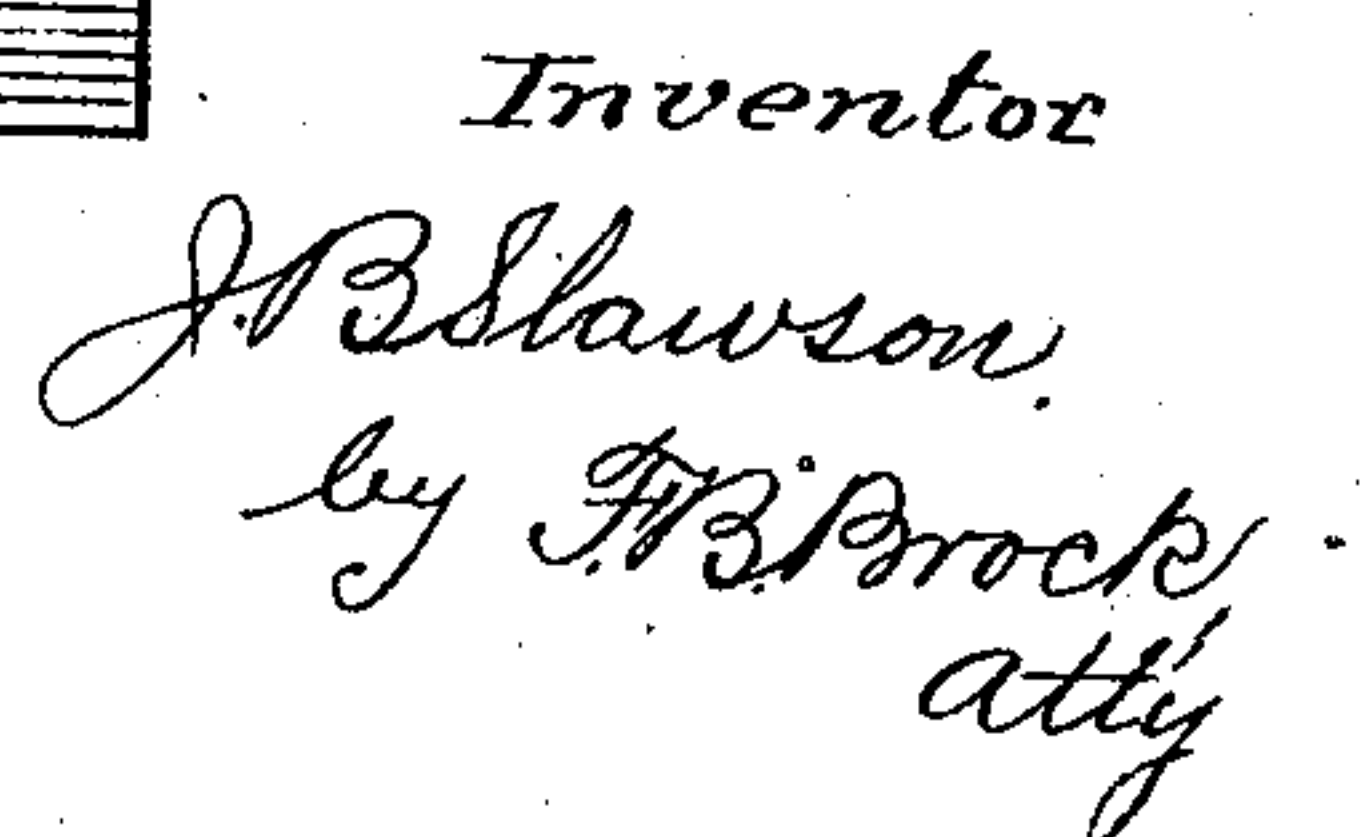 Inventor
J. B Slawson.
by F. B. Brock
Att'y